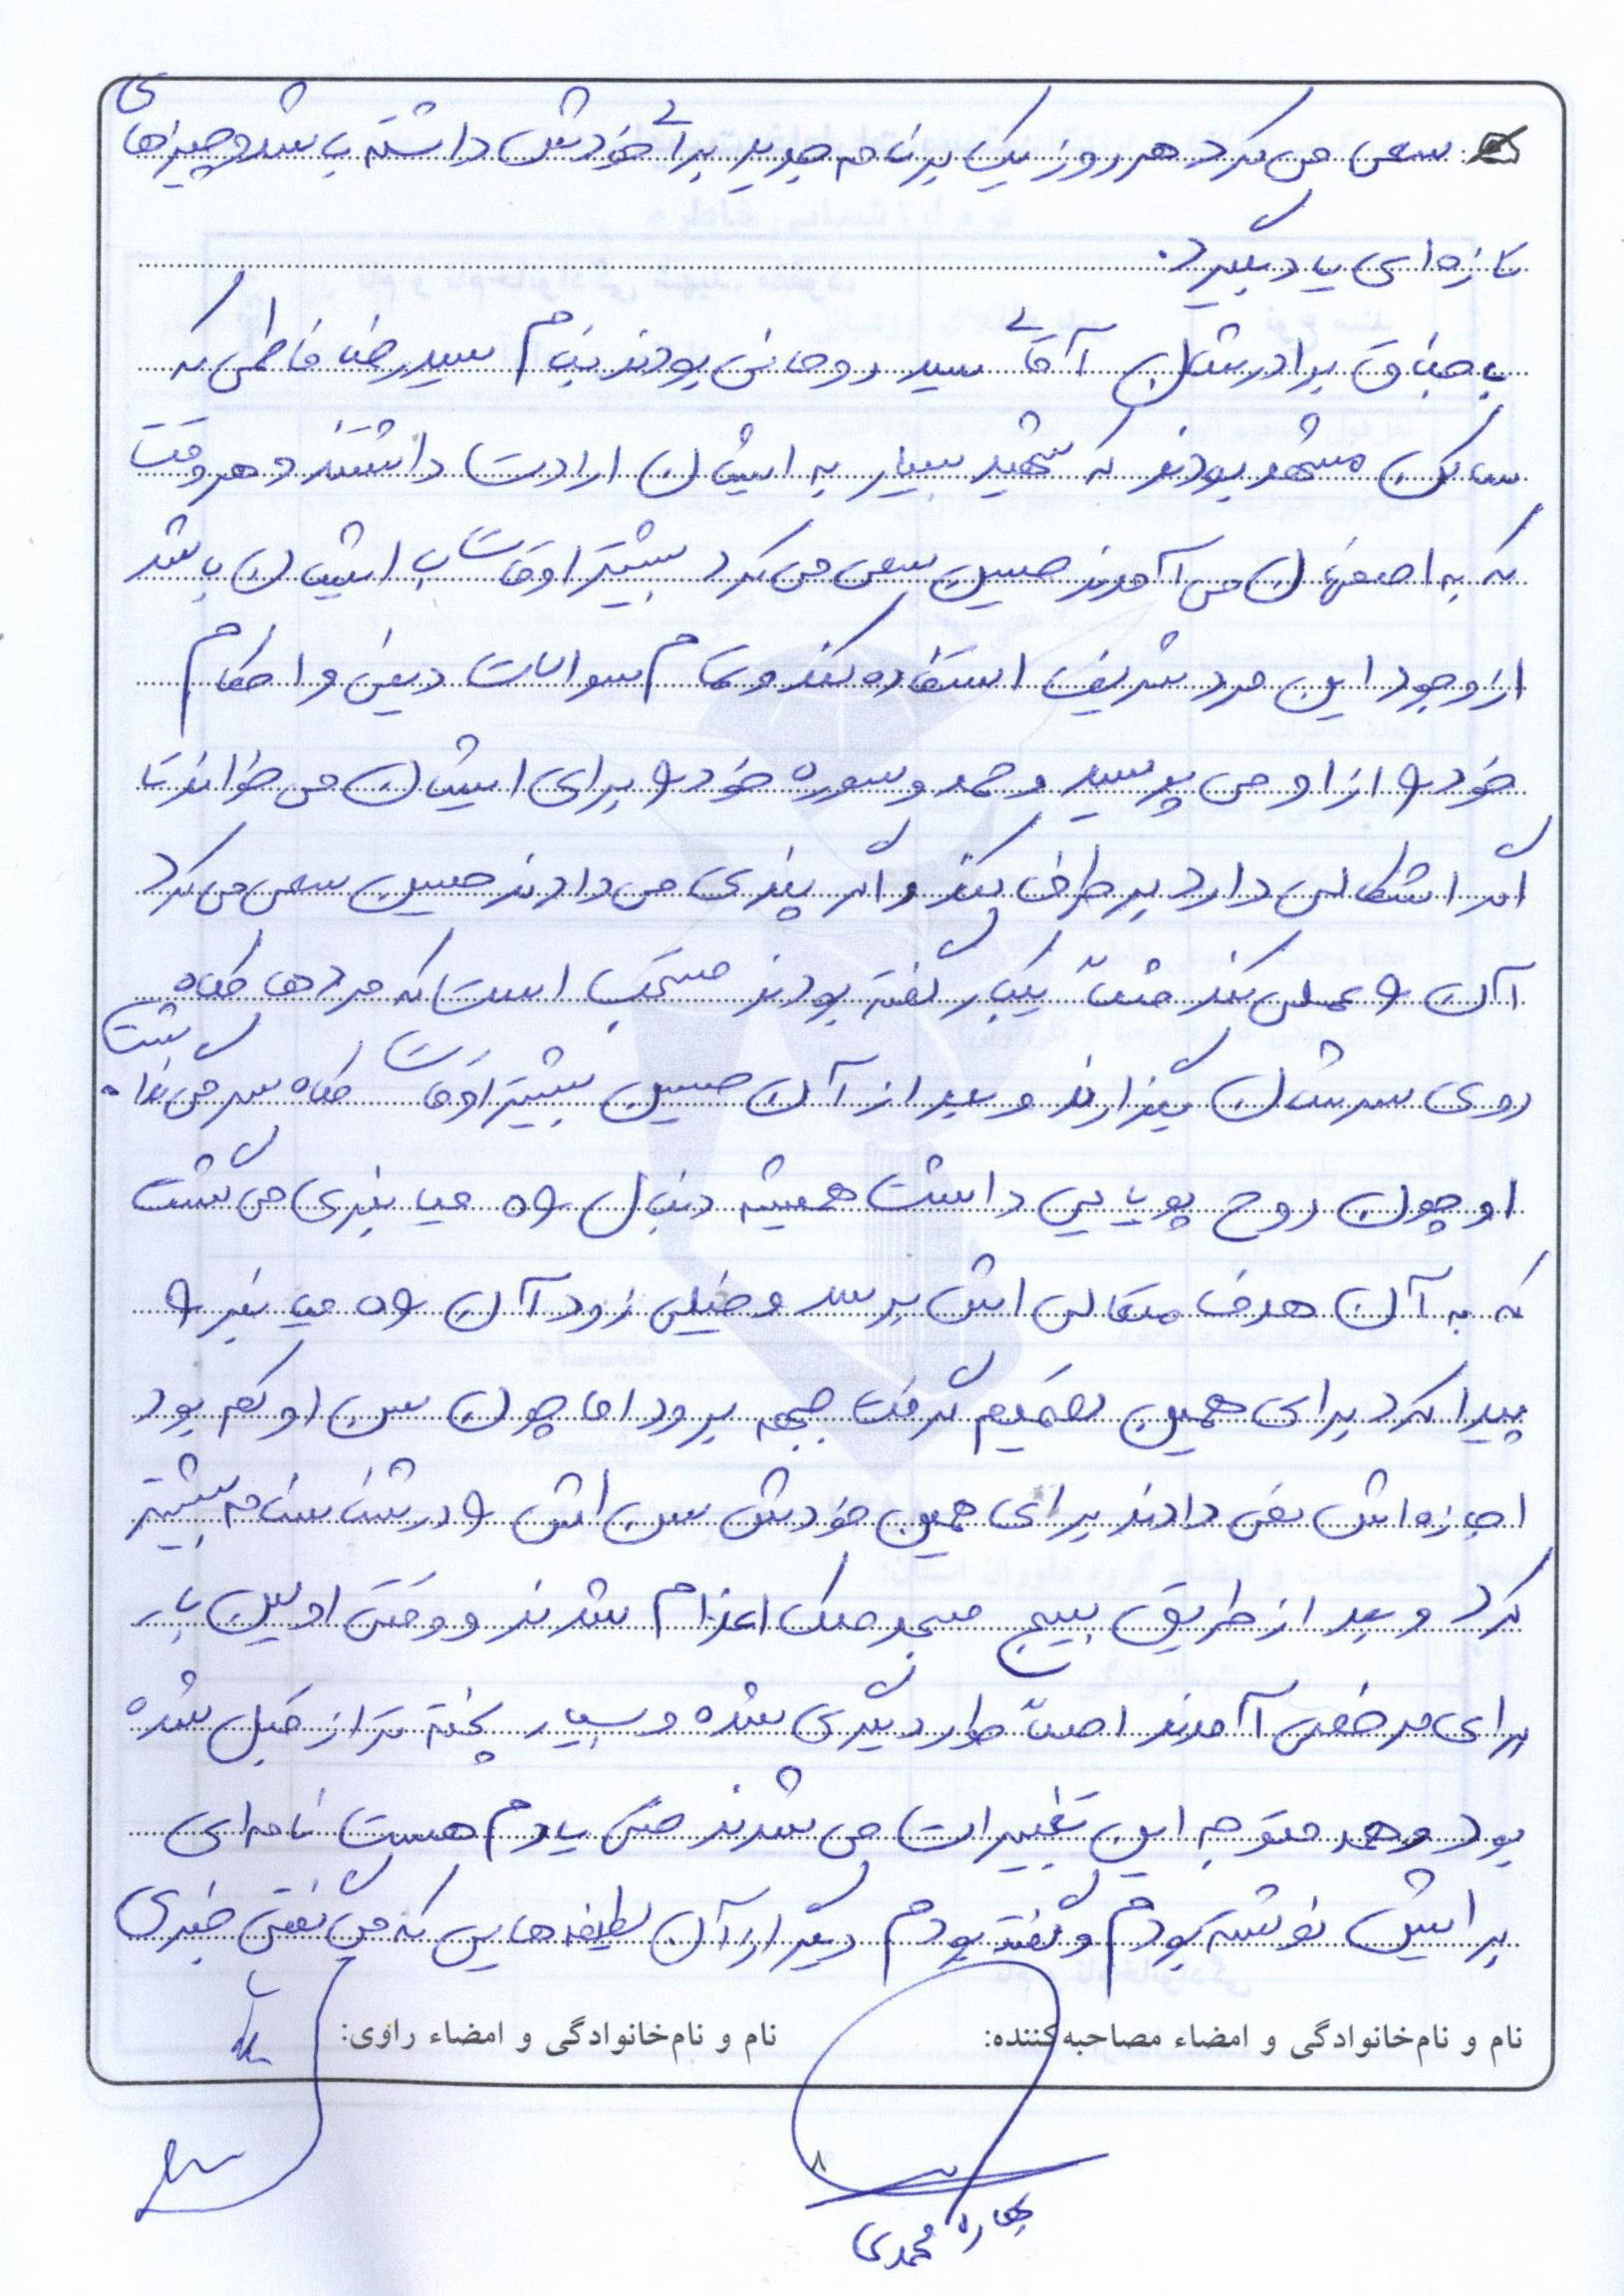 سعی می کرد هر روز یک برنامه جدید برای خودش داشته باشد و چیزهای
تازه ای یاد بگیرد.
باجناق برادرشان آقای سید روحانی بودند بنام سید رضا فاطمی که
ساکن مشهد بودند که شهید بسیار به ایشان ارادت داشتند و هر وقت
که به اصفهان می آمدند حسین سعی می کرد بیشتر اوقات با ایشان باشد
از وجود این مرد شریف استفاده کند و تمام سوالات دینی و احکام
خود را از او می پرسید و حمد و سوره خود را برای ایشان می خواند تا
اگر اشکالی دارد برطرف کند و اگر پندی می دادند حسین سعی می کرد
آن را عملی کند مثلاً یکبار گفته بودند مستحب است که مردها کلاه
روی سرشان بگذارند و بعد از آن حسین بیشتر اوقات کلاه سر می گذاشت.
او چون روح پویایی داشت همیشه دنبال راه میانبری می گشت
که به آن هدف متعالی اش برسد و خیلی زود آن راه میانبر را
پیدا کرد برای همین تصمیم گرفت جبهه برود اما چون سن او کم بود
اجازه اش نمی دادند برای همین خودش سن اش را در شناسنامه بیشتر
کرد و بعد از طریق بسیج مسجد ملک اعزام شدند و وقتی اولین بار
برای مرخصی آمدند اصلاً طور دیگری شده و بسیار پخته تر از قبل شده
بود و همه متوجه این تغییرات می شدند حتی یادم هست نامه ای
برایش نوشته بودم و گفته بودم دیگر از آن لطیفه هایی که می گفتی خبری
نام و نام‌خانوادگی و امضاء مصاحبه‌کننده: نام و نام‌خانوادگی و امضاء راوی:
۸
بهاره محمدی